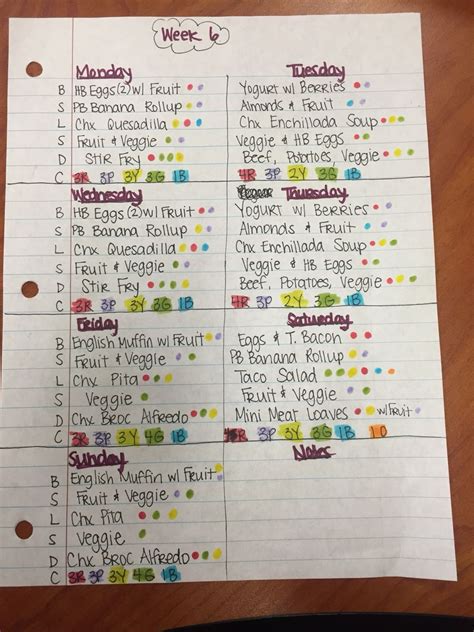 Week 6
Monday
B HB Eggs (2) w/ Fruit
S PB Banana Rollup
L Chx Quesadilla
S Fruit & Veggie
D Stir Fry
C 3R 3P 3Y 3G 1B
Tuesday
Yogurt w/ Berries
Almonds & Fruit
Chx Enchillada Soup
Veggie & HB Eggs
Beef, Potatoes, Veggie
4R 3P 2Y 3G 1B
Wednesday
B HB Eggs (2) w/ Fruit
S PB Banana Rollup
L Chx Quesadilla
S Fruit & Veggie
D Stir Fry
C 3R 3P 3Y 3G 1B
Thursday
Yogurt w/ Berries
Almonds & Fruit
Chx Enchillada Soup
Veggie & HB Eggs
Beef, Potatoes, Veggie
4R 3P 2Y 3G 1B
Friday
B English Muffin w/ Fruit
S Fruit & Veggie
L Chx Pita
S Veggie
D Chx Broc Alfredo
C 3R 3P 3Y 4G 1B
Saturday
Eggs & T. Bacon
PB Banana Rollup
Taco Salad
Fruit & Veggie
Mini Meat Loaves w/ Fruit
3P 3Y 3G 1B 1O
Sunday
B English Muffin w/ Fruit
S Fruit & Veggie
L Chx Pita
S Veggie
D Chx Broc Alfredo
C 3R 3P 3Y 4G 1B
Notes